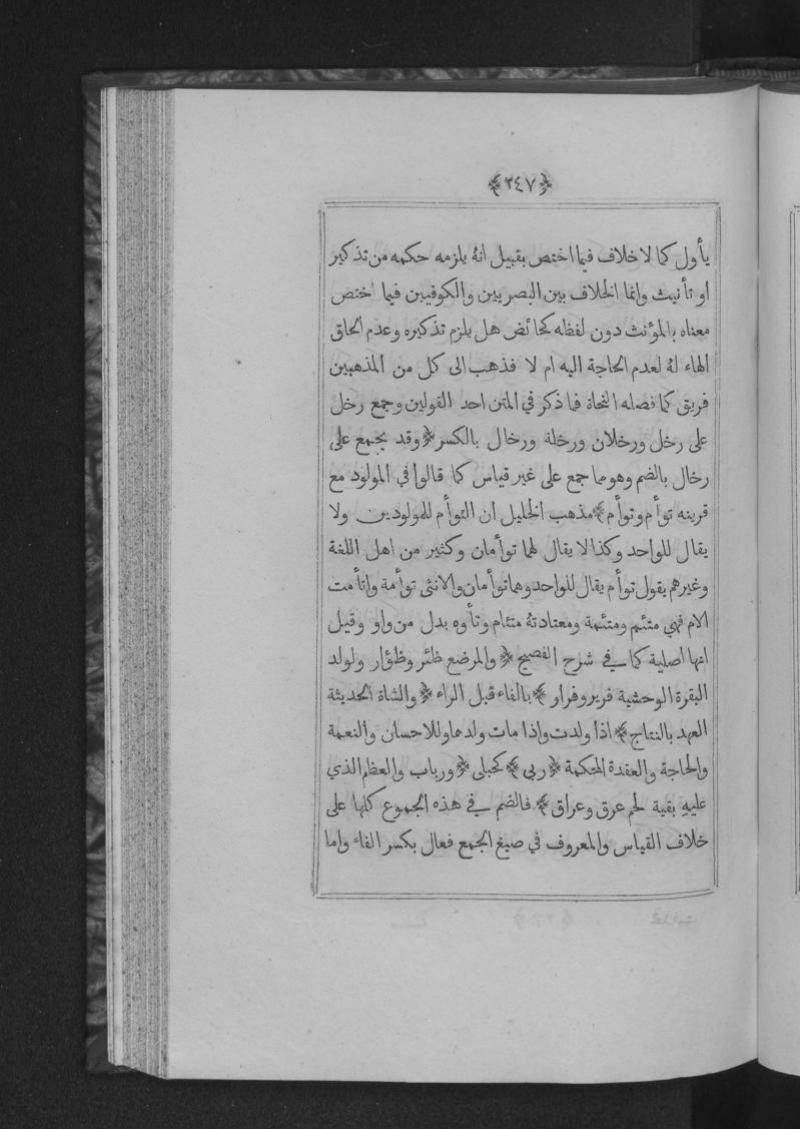 ﴿٢٤٧﴾
يأول كما لاخلاف فيما اختص بقبيل انهُ يلزمه حكمه من تذكير
او تأنيث وانما الخلاف بين البصريين والكوفيين فيما اختص
معناه بالمؤنث دون لفظه كحائض هل يلزم تذكيره وعدم الحاق
الهاء لهُ لعدم الحاجة اليه ام لا فذهب الى كل من المذهبين
فريق كما فصله النحاة فما ذكر في المتن احد القولين وجمع رخل
على رخل ورخلان ورخلة ورخال بالكسر ﴿ وقد يجمع على
رخال بالضم وهو مما جمع على غير قياس كما قالوا في المولود مع
قرينه توأم وتوأم ﴾ مذهب الخليل ان التوأم للمولودين ولا
يقال للواحد وكذا لا يقال لهما توأمان وكثير من اهل اللغة
وغيرهم يقول توأم يقال للواحد وهما توأمان والانثى توأمة واتأمت
الام فهي متئم ومتئمة ومعتادتهُ متئام وتأوه بدل من واو وقيل
انها اصلية كما في شرح الفصيح ﴿ والمرضع ظئر وظؤار ولولد
البقرة الوحشية فرير وفرار ﴾ بالفاء قبل الراء ﴿ والشاة الحديثة
العهد بالنتاج ﴾ اذا ولدت واذا مات ولدها وللاحسان والنعمة
والحاجة والعقدة المحكمة ﴿ ربى ﴾ كحبلى ﴿ ورباب والعظم الذي
عليهِ بقية لحم عرق وعراق ﴾ فالضم في هذه الجموع كلها على
خلاف القياس والمعروف في صيغ الجمع فعال بكسر الفاء واما